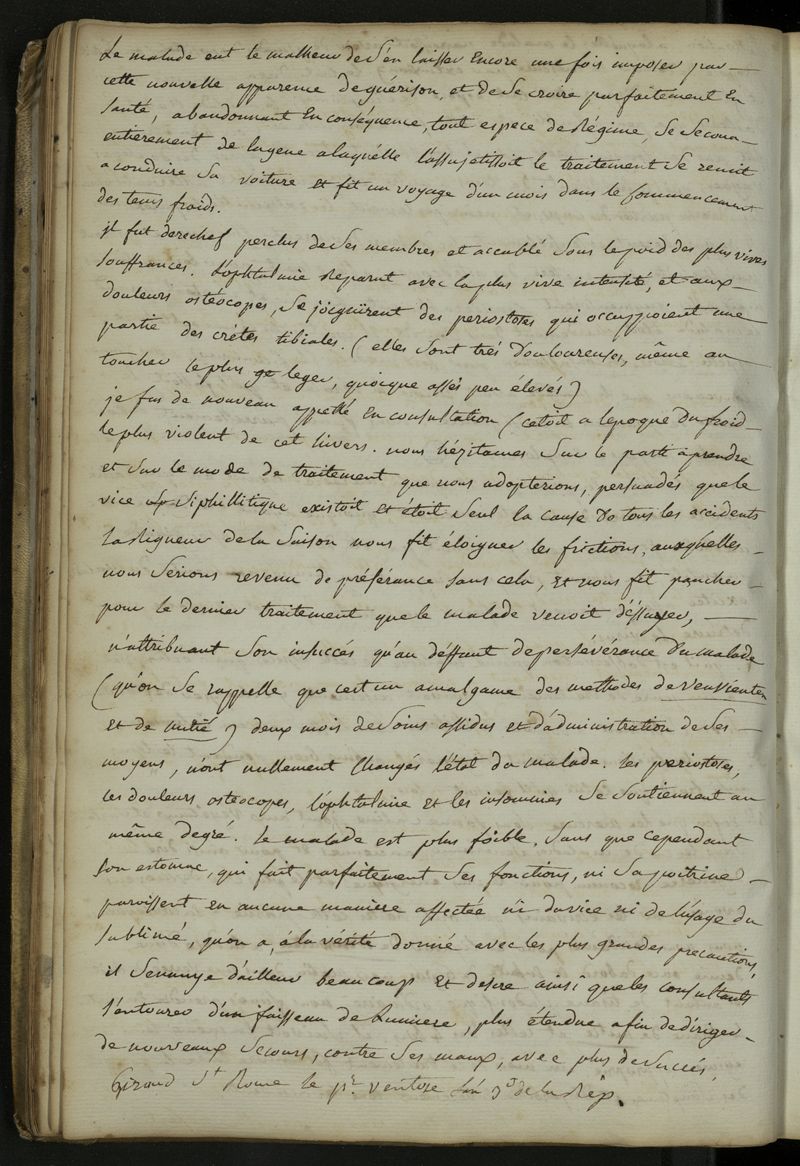 Le malade eut le malheur de s'en laisser encore une fois imposer par
cette nouvelle apparence de guérison, et de se croire parfaitement en
santé, abandonnant en conséquence, tout espece de régime, se secoua
entièrement de la gene a laquélle l'assujetissoit le traitement se remit
a conduire sa voiture et fit un voyage d'un mois dans le commencement
des tems froids.
jl fut derechef perclus de ses membres et accablé sous le poid des plus vives
souffrances. l'ophtalmie reparut avec la plus vive intensité, et aux
douleurs ostéocopes, se joignirent des periostoses qui occuppoient une
partie des crétes tibiales. (elles sont trés douloureuses, même au
toucher le plus leger, quoique assés peu élevés)
je fus de nouveau appellé en consultation (cetoit a lepoque du froid
le plus violent de cet hivers. nous hézitames sur le parti à prendre
et sur le mode de traitement que nous adopterions, persuadés que le
vice siphillitique existoit et étoit seul la cause de tous les accidents
la rigueur de la saison nous fit éloigner les frictions, auxquelles
nous serions revenu de préférance sans cela, et nous fit pancher
pour le dernier traitement que le malade venoit d'éssayer,
n'attribuant son insuccés qu'au déffaut de persévérance du malade
(qu'on se rappelle que cest un amalgame des methodes de Venvienten
et de mitié) deux mois de soins assidus et d'administration de ses
moyens, n'ont nullement changés l'état du malade. les periostoses,
les douleurs osteocopes, l'ophtalmie et les insomnies se soutiennent au
même degré. le malade est plus foible, sans que cependant
son estomac, qui fait parfaitement ses fonctions, ni sa poitrine
paroissent en aucune maniere affectée ni du vice ni de l'usage du
sublimé, qu'on a, á la vérité donné avec les plus grandes precautions,
il sennuye d'ailleur beaucoup et desire ainsi que les consultants
s'entourer d'un faisseau de lumiere, plus étendue afin de diriger
de nouveaux secours, contre ses maux, avec plus de succés.
Giraud St Rome le 1er ventose l'an 9e de la Rép.